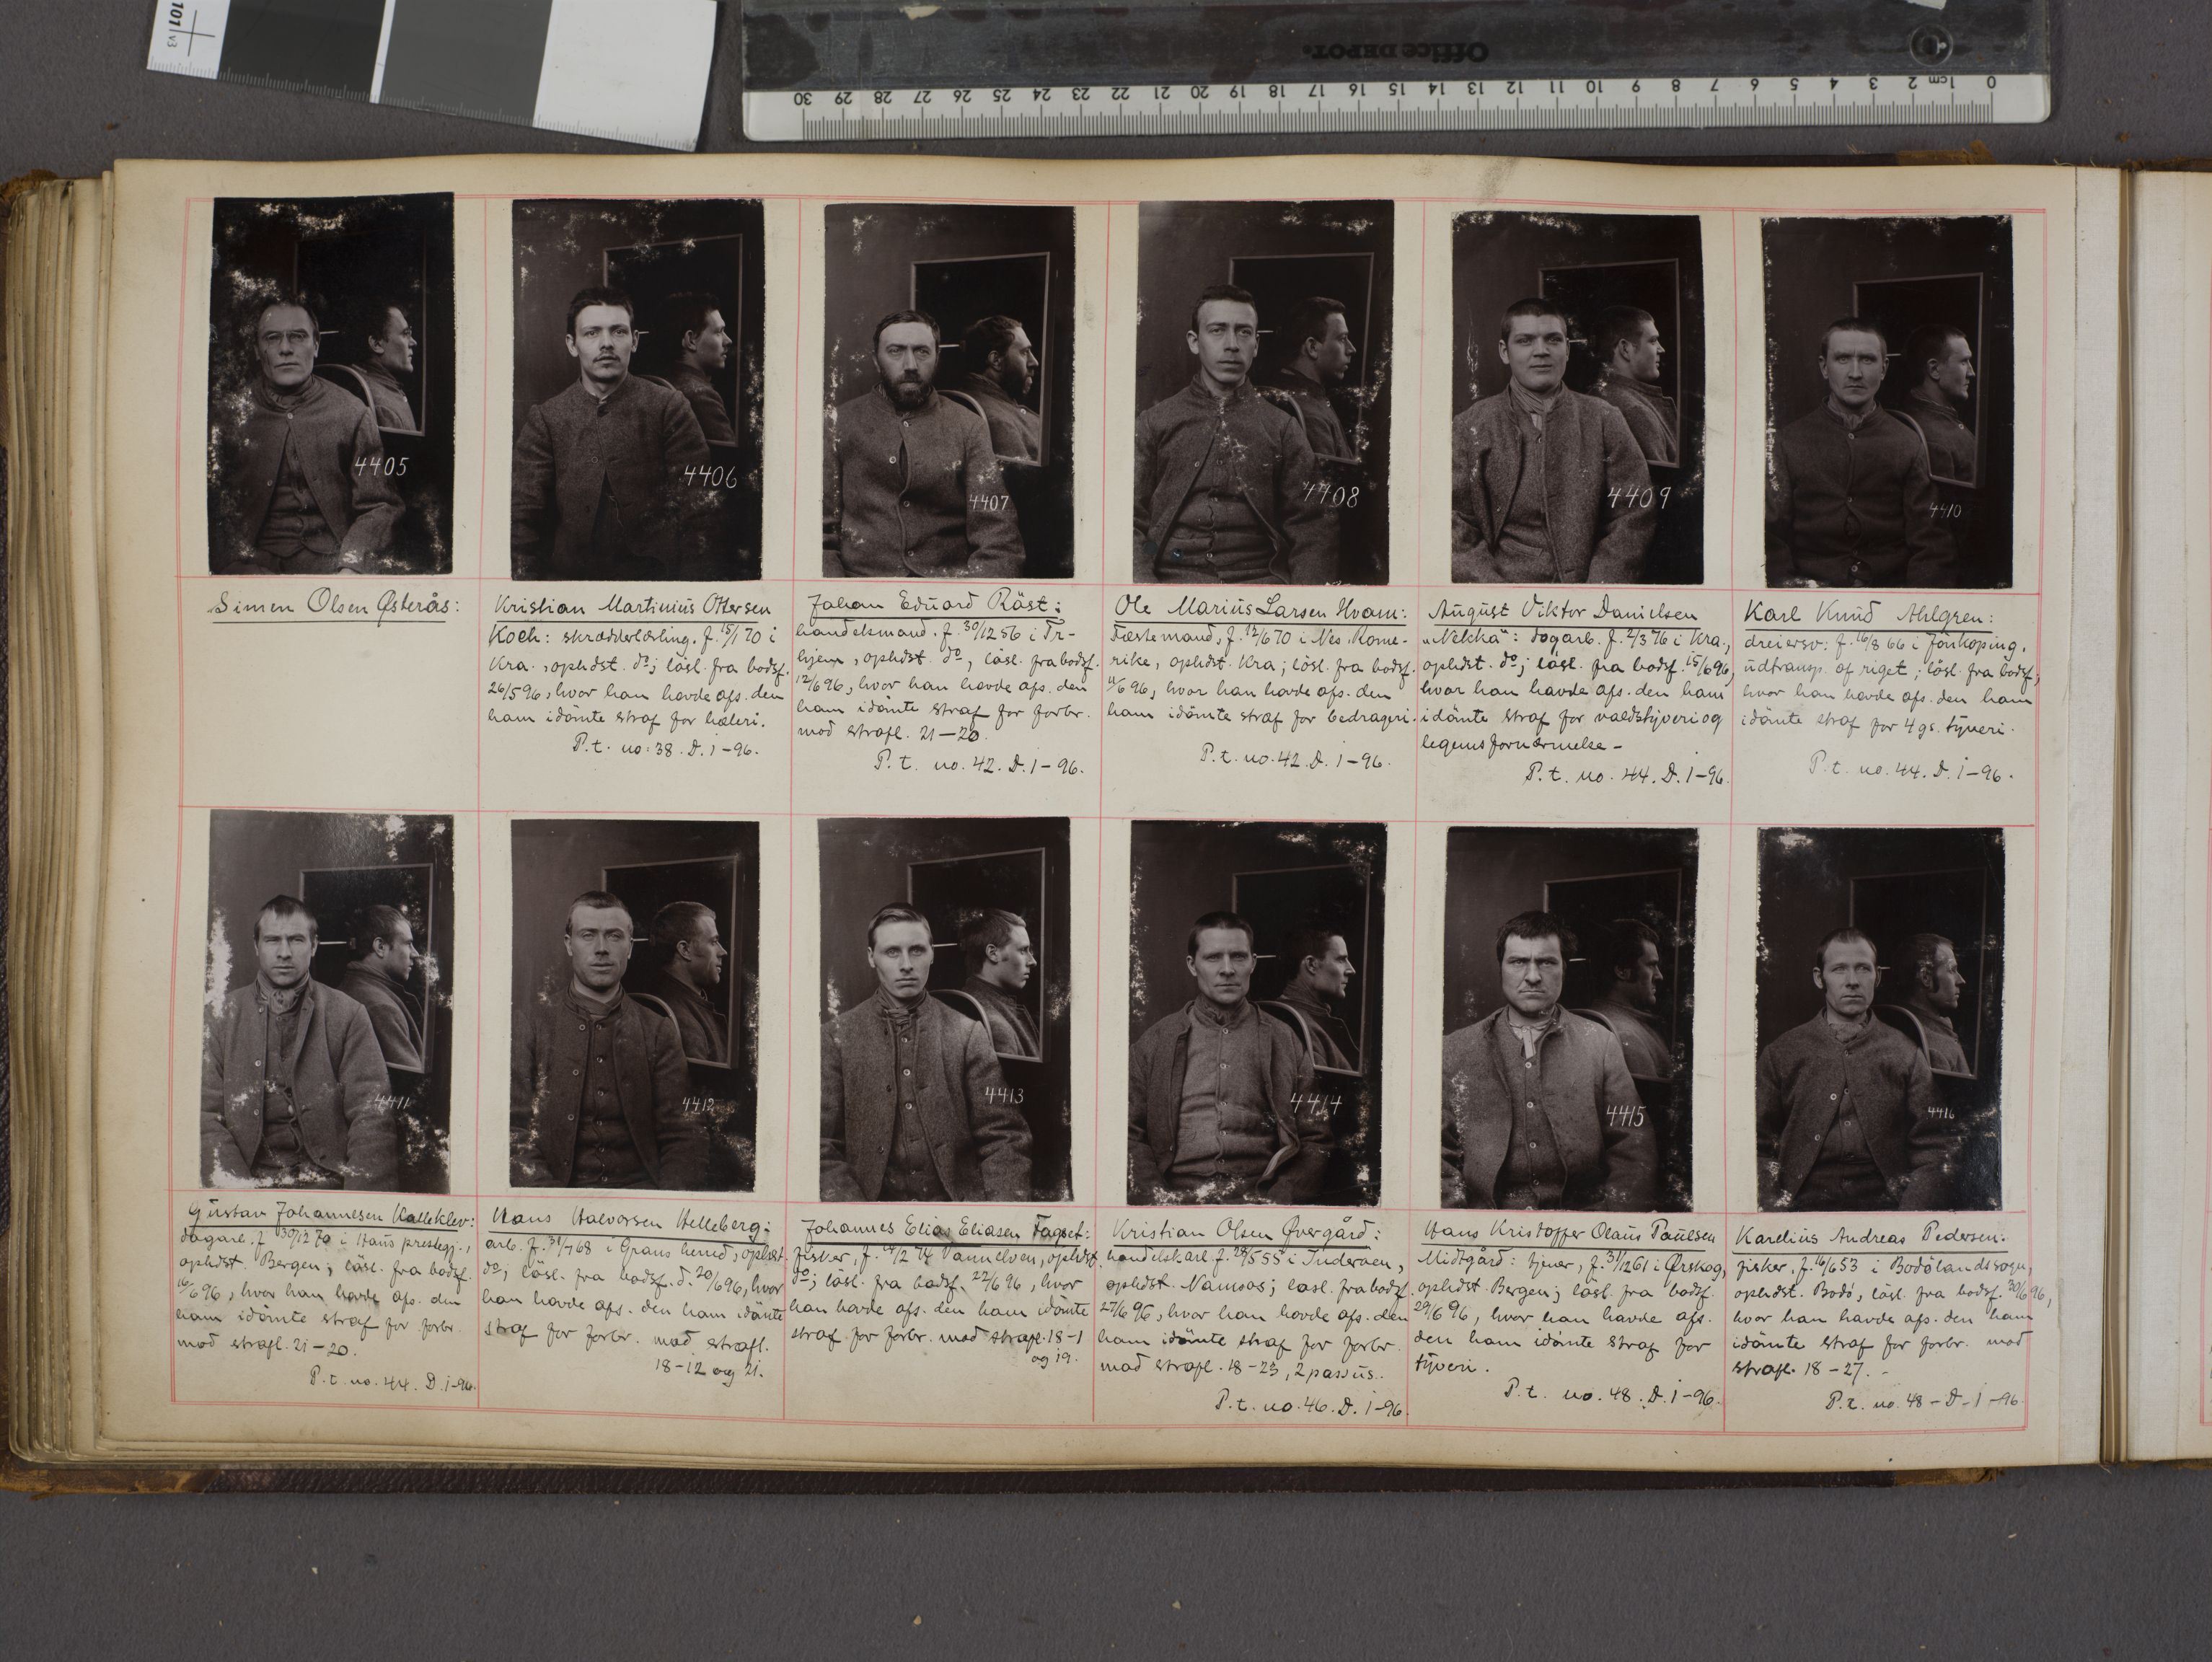 101 v3
Office DEPOT.
0 1cm 2 3 4 5 6 7 8 9 10 11 12 13 14 15 16 17 18 19 20 21 22 23 24 25 26 27 28 29 30
4405
4406
4407
4408
4409
4410
Simen Olsen Østerås:
Kristian Martinius Ottersen
Koch: skrædderlærling. f. 15/1 70 i
Kra., opholdst. do; lösl. fra bodsf.
26/5 96, hvor han havde afs. den
ham idömte straf for hæleri.
P.t. no: 38. D. i-96.
Johan Eduard Räst:
handelsmand. f. 30/12 56 i Tr-
hjem, ophldst. do, lösl. fra bodsf.
12/6 96, hvor han havde afs. den
ham idömte straf for forbr.
mod strafl. 21-20.
P.t. no. 42. D. i-96.
Ole Marius Larsen Hvam:
Fæstemand, f. 12/6 70 i Nes. Rome-
rike, ophldst. Kra; lösl. fra bodsf.
11/6 96, hvor han havde afs. den
ham idömte straf for bedrageri.
P.t. no. 42. D. i-96.
August Viktor Danielsen
„Nekka": dagarb. f. 2/3 76 i Kra.,
ophldst. do; lösl. fra bodsf. 15/6 96,
hvor han havde afs. den ham
idömte straf for valdstyveri og
legemsfornærmelse -
P.t. no. 44. D. i-96.
Karl Knud Ahlgren:
dreiersv: f. 16/8 66 i Jönköping,
udtransp. af riget; lösl. fra bodsf.,
hvor han havde afs. den ham
idömte straf for 4 gs. tyveri.
P.t. no. 44. D. i-96.
4411
4412
4413
4414
4415
4416
Gustav Johannesen Kalleklev:
dagarb. f. 30/12 70 i Haus prestegj.,
ophldst. Bergen; lösl. fra bodsf.
16/6 96, hvor han havde afs. den
ham idömte straf for forbr.
mod strafl. 21-20.
P.t. no. 44. D. i-96.
Hans Halvorsen Helleberg:
arb. f. 31/7 68 i Grans herred, ophldst.
do; lösl. fra bodsf. d. 20/6 96, hvor
han havde afs. den ham idömte
straf for forbr. mod strafl.
18-12 og 21.
Johannes Elias Eliasen Fagset:
fisker, f. 14/2 74 Vannelven, ophldst.
do; lösl. fra bodsf. 22/6 96, hvor
han havde afs. den ham idömte
straf for forbr. mod strafl. 18-1
og 19.
Kristian Olsen Øvergård:
handelskarl f. 28/5 55 i Inderøen,
ophldst. Namsos; lösl. fra bodsf.
27/6 96, hvor han havde afs. den
ham idömte straf for forbr.
mod strafl. 18-23, 2 passus.
P.t. no. 46. D. i-96.
Hans Kristoffer Olaus Paulsen
Midtgård: tjener, f. 31/12 61 i Ørskog,
ophldst Bergen; lösl. fra bodsf.
29/6 96, hvor han havde afs.
den ham idömte straf for
tyveri.
P.t. no. 48. D. i-96.
Karelius Andreas Pedersen:
fisker, f. 16/6 53 i Bodölandssogn,
ophldst. Bodö, lösl. fra bodsf. 30/6 96,
hvor han havde afs. den ham
idömte straf for forbr. mod
strafl. 18-27. -
P.t. no. 48 - D - i-96.